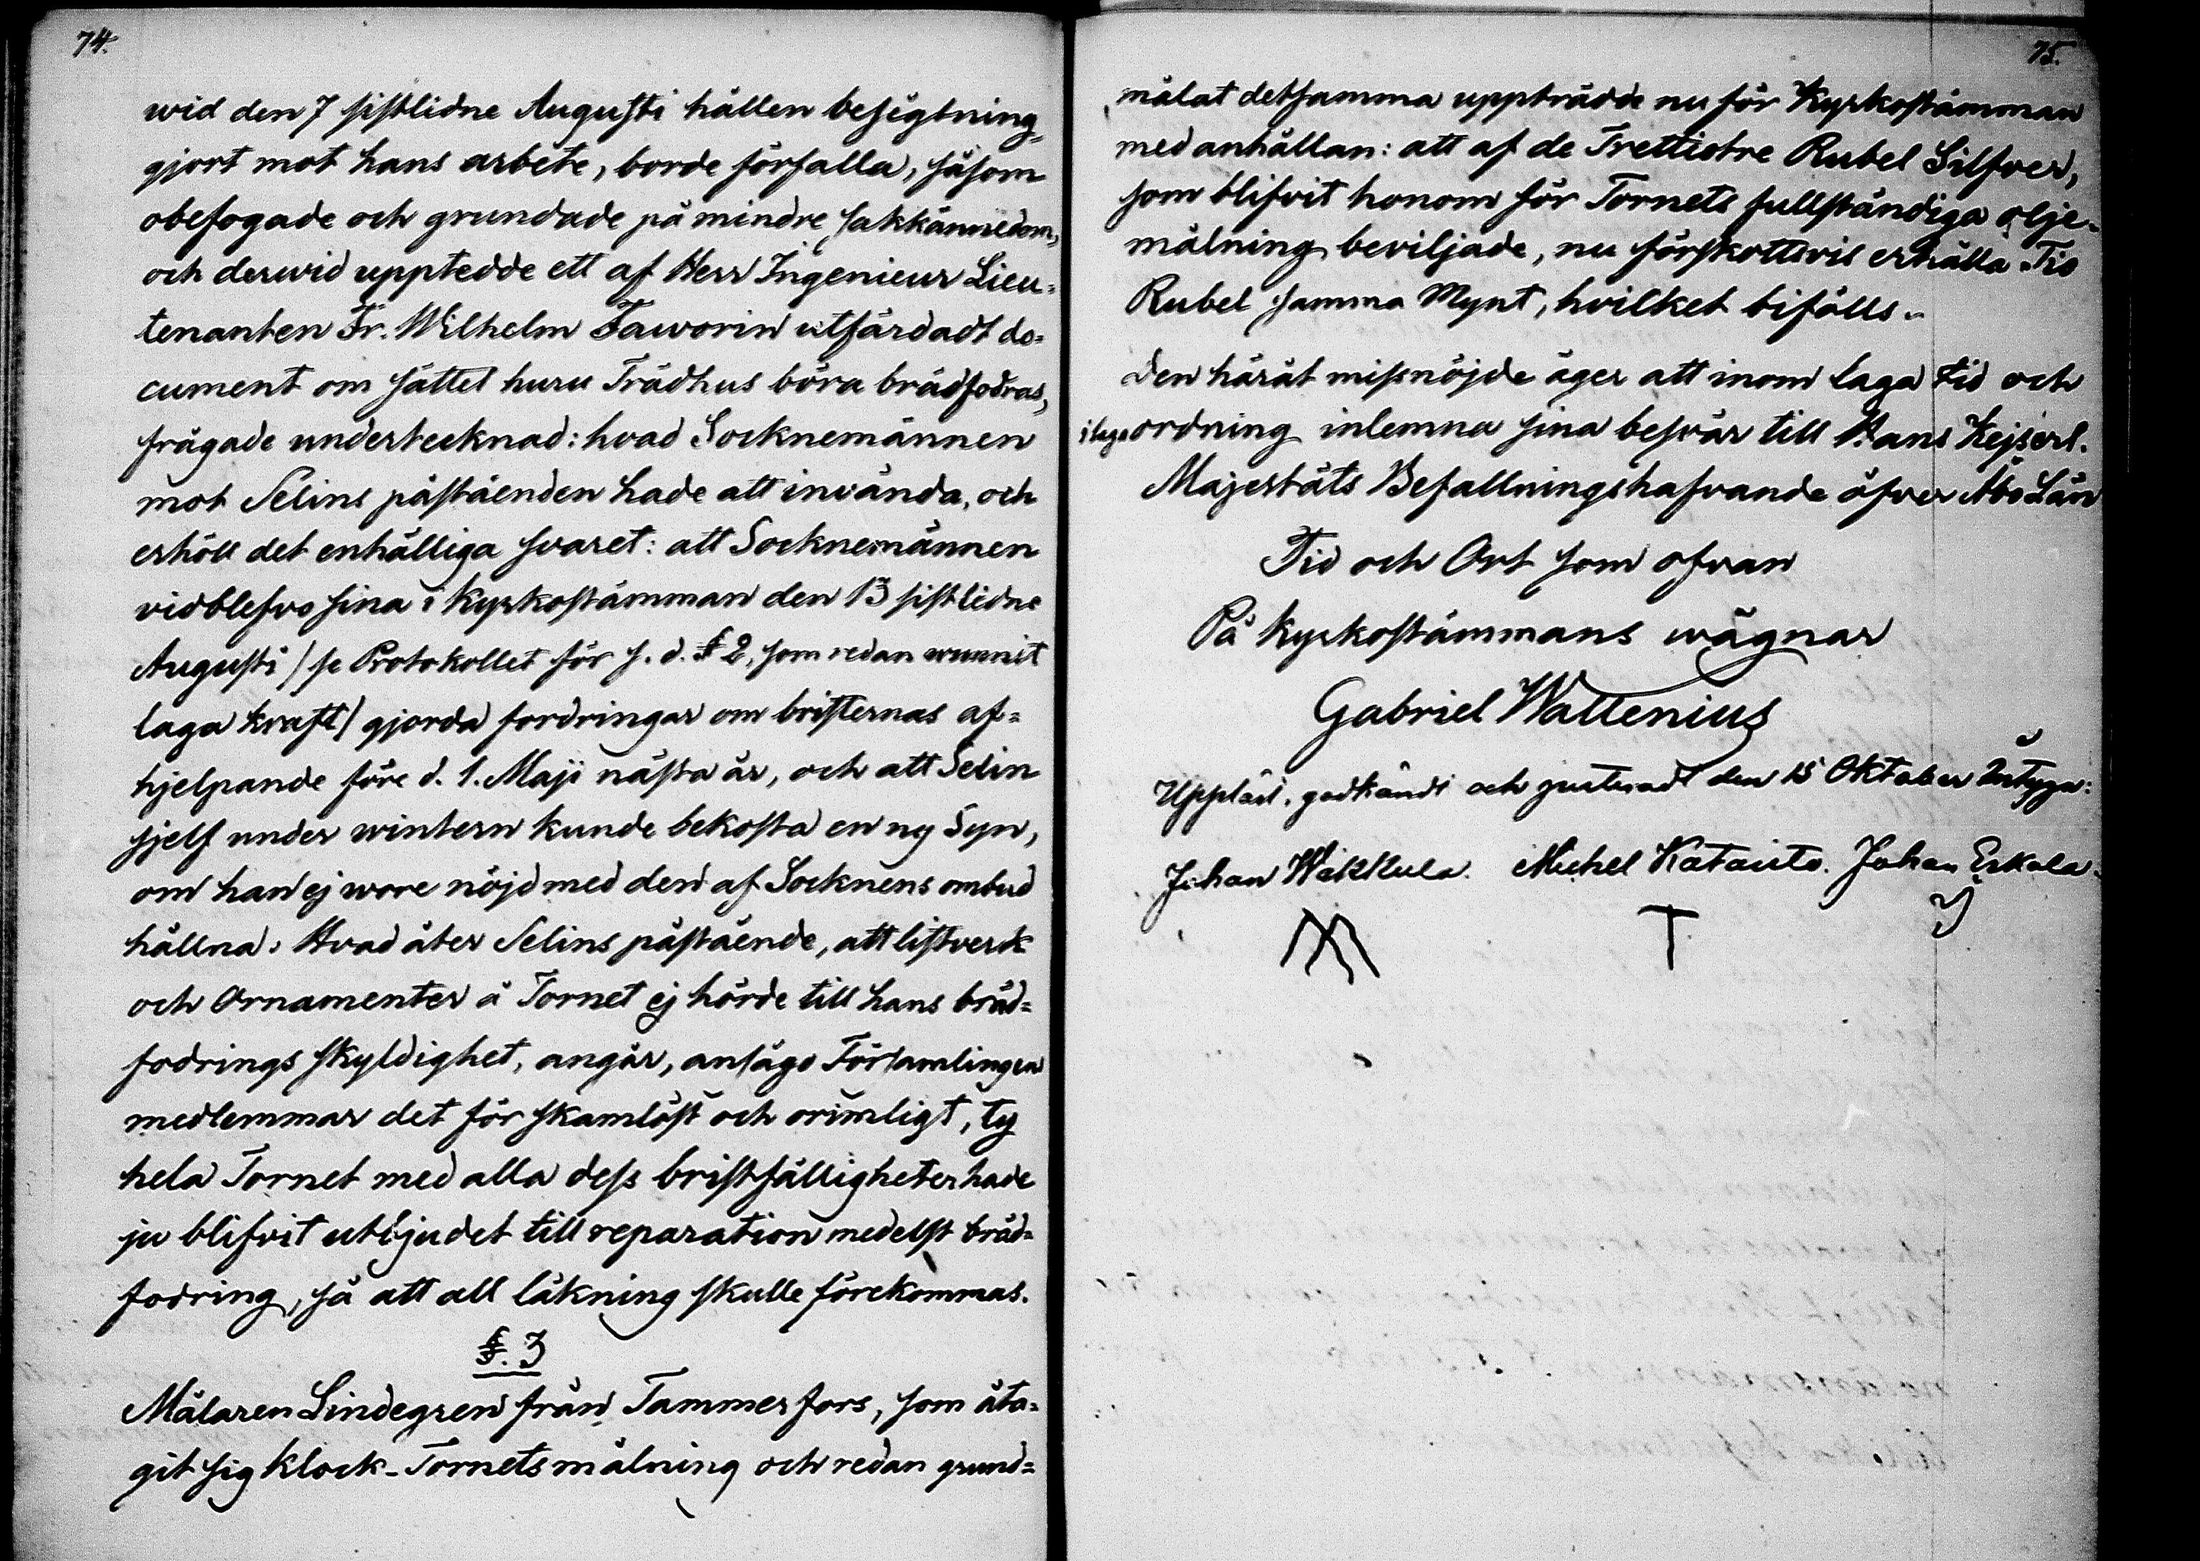 74.
wid den 7 sistlidne Augusti hållen besigtning,
gjort mot hans arbete, borde förfalla, såsom
obefogade och grundade på mindre sakkännedom,
och derwid upptedde ett af Herr Ingenieur Lieu=
tenanten Fr. Wilhelm Faworin utfärdadt do=
cument om sättet huru Trädhus böra brädfodras,
frågade undertecknad: hvad Socknemännen
mot Selins påståenden hade att invända, och
erhöll det enhälliga svaret: att Socknemännen
vidblefvo sina i Kyrkostämman den 13 sistlidne
Augusti / se Protokollet för s. d. § 2, som redan wunnit
laga kraft/ gjorda fordringar om bristernas af=
hjelpande före d. 1. Maji nästa år, och att Selin
sjelf under wintern kunde bekosta en ny Syn,
om han ej wore nöjd med den af Socknens ombud
hållna. Hvad åter Selins påstående, att listverk
och Ornamenter å Tornet ej hörde till hans bräd=
fodrings skyldighet, angår, ansågo Församlingen
medlemmar det för skamlöst och orimligt, ty
hela Tornet med alla dess bristfälligheter hade
ju blifvit utbjudet till reparation medelst bräd=
fodring, så att all läkning skulle förekommas.
§. 3
Målaren Lindegren från Tammerfors, som åta=
git sig Klock-Tornets målning och redan grund=
75.
målat detsamma uppträdde nu för Kyrkostämman
med anhållan: att af de Trettiotre Rubel Silfver,
som blifvit honom för Tornets fullständiga olje=
målning beviljade, nu förskottsvis erhålla Tio
Rubel samma Mynt, hvilket bifölls.
Den häråt missnöjde äger att inom laga tid och
i laga ordning inlemna sina besvär till Hans Kejserl.
Majestäts Befallningshafvande öfver Åbo Län
Tid och Ort som ofvan
På Kyrkostämmans wägnar
Gabriel Wallenius
Uppläst, godkändt och justeradt den 15 Oktober betyga:
Johan Wäkkula. Michel Katauto. Johan Erkola.